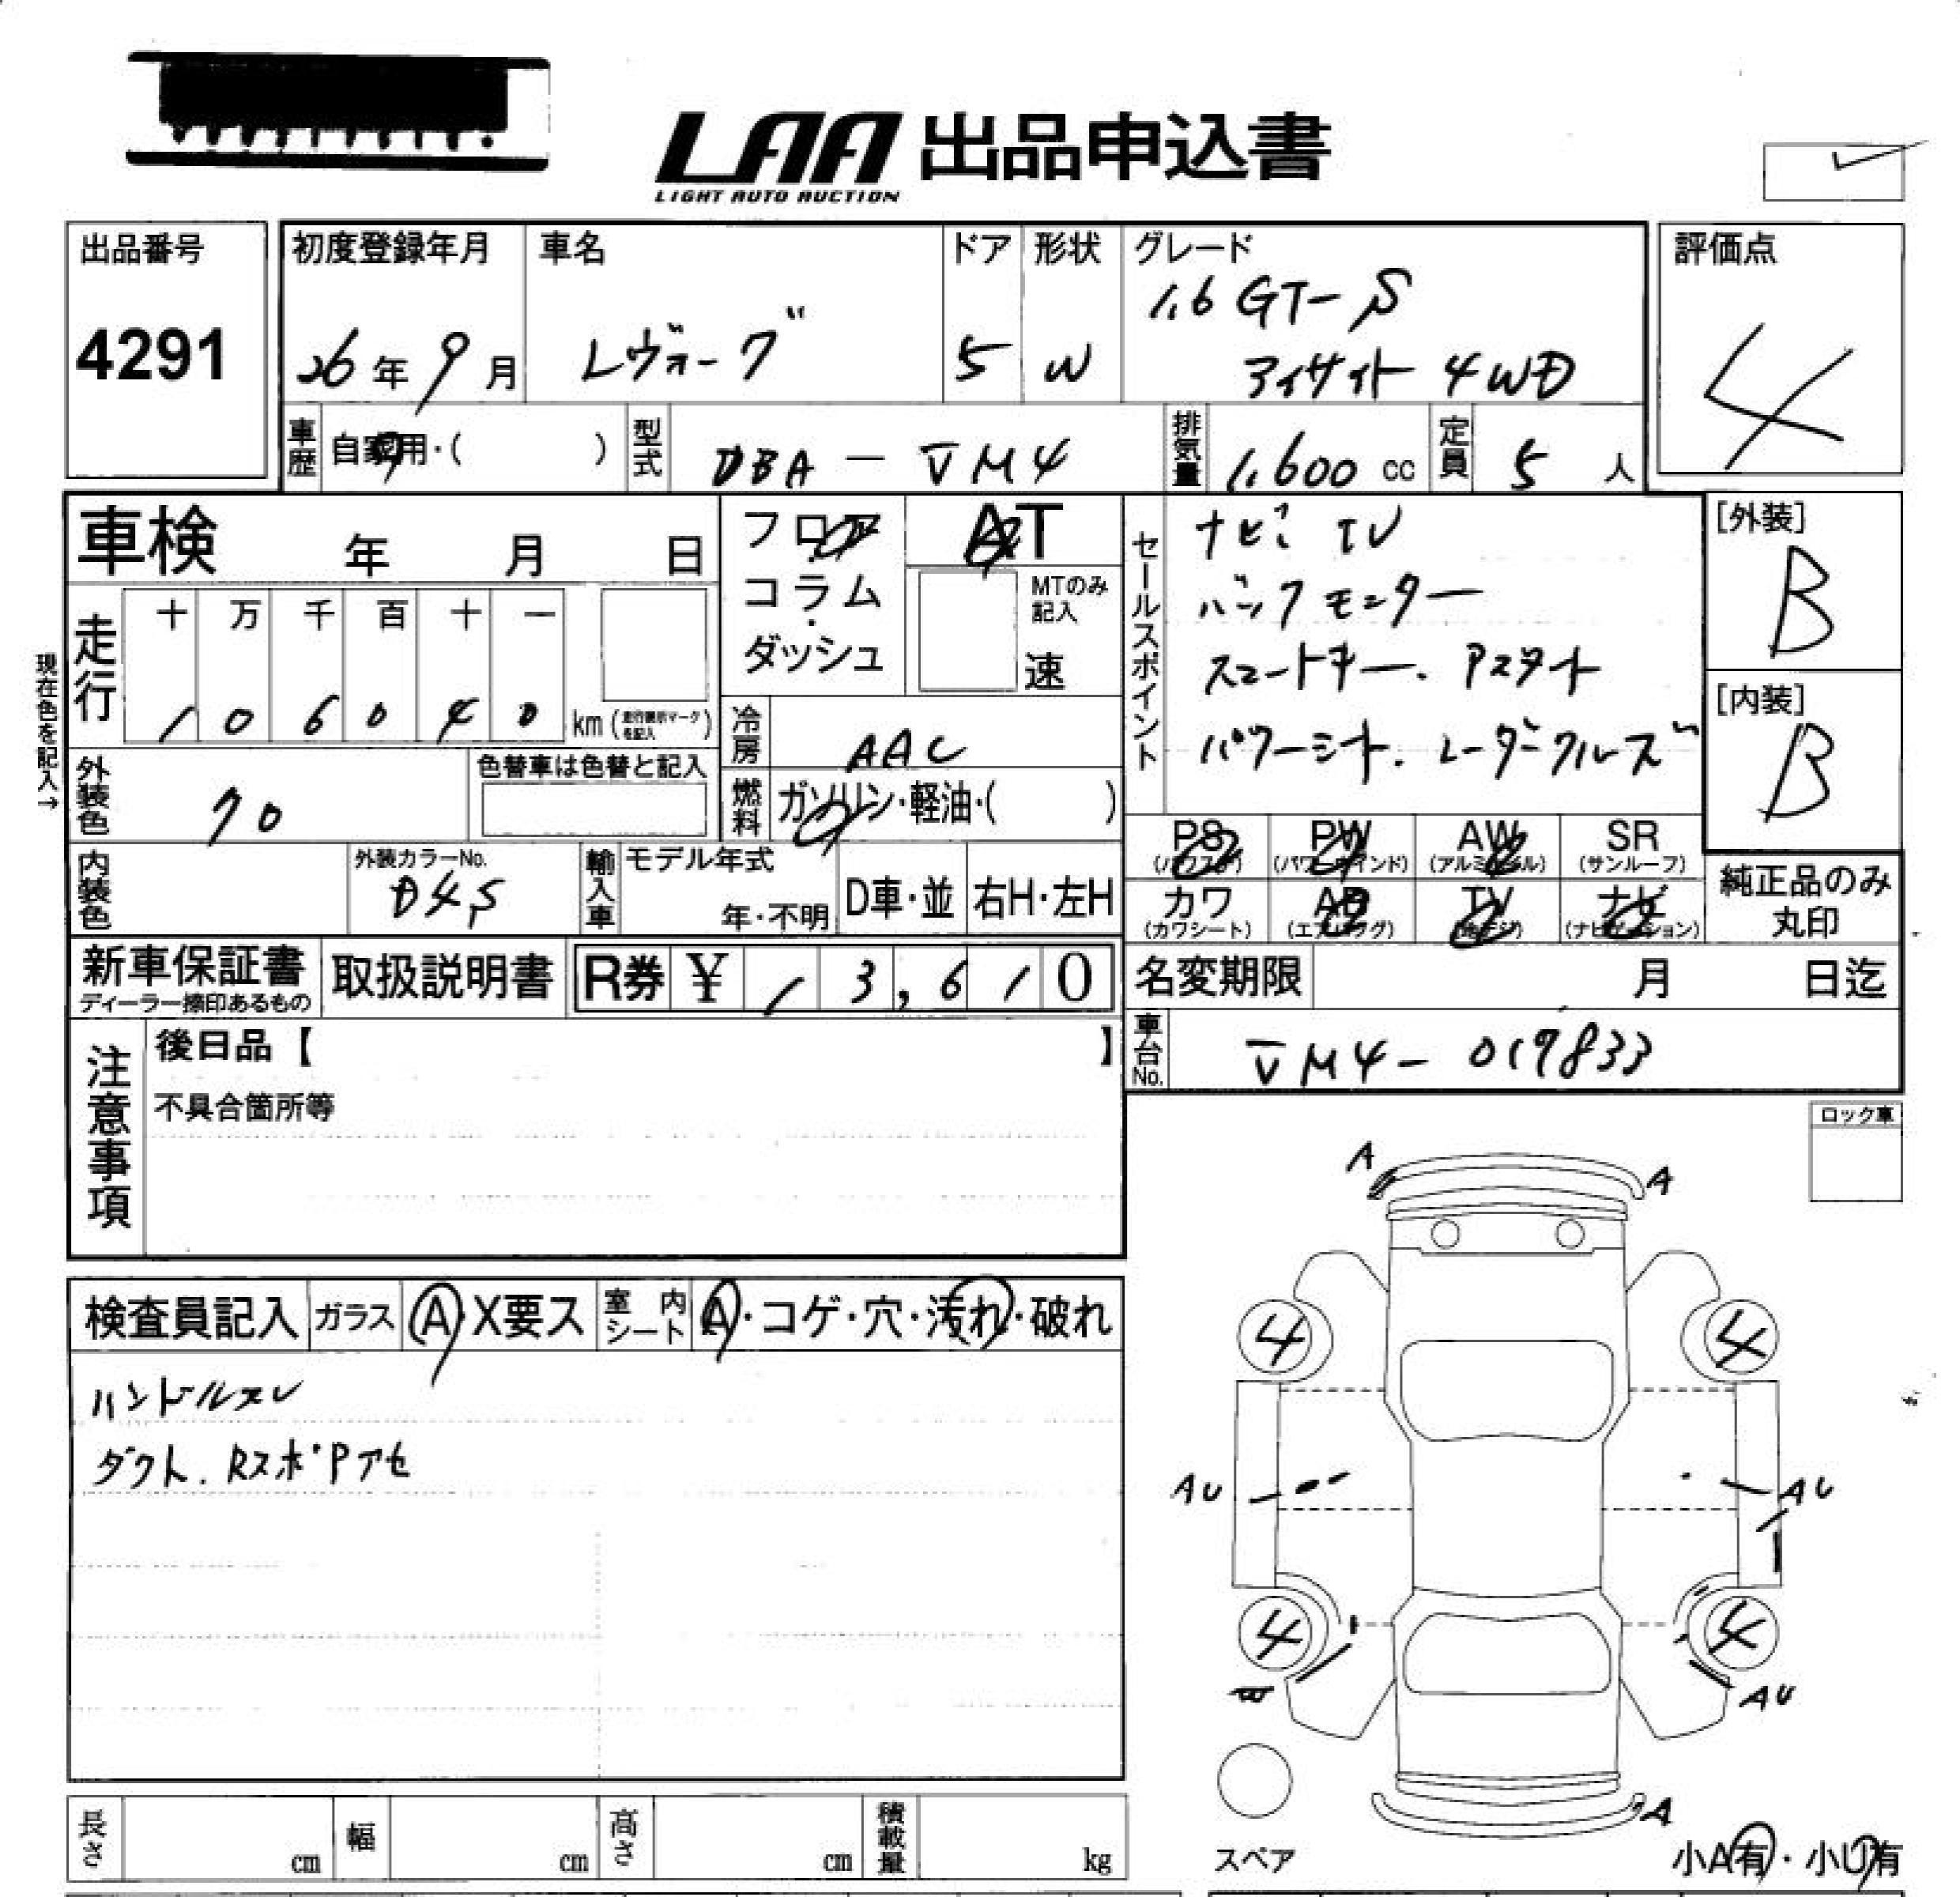 LAA 出品申込書
LIGHT AUTO AUCTION
出品番号
4291
初度登録年月
26年9月
車名
レヴォーグ
ドア
5
形状
W
グレード
1.6 GT-S
アイサイト 4WD
評価点
4
車歴
自家用・( )
型式
DBA-VM4
排気量
1,600 cc
定員
5 人
車検 年 月 日
フロア
・
コラム
・
ダッシュ
AT
MTのみ
記入
速
セールスポイント
ナビ TV
バックモニター
スマートキー. Pスタート
パワーシート. レーダークルーズ
[外装]
B
[内装]
B
現在色を記入→
走行
十 万 千 百 十 一
1 0 6 0 4 0 km (走行表示マークを記入)
冷房
AAC
外装色
クロ
色替車は色替と記入
燃料
ガソリン・軽油・( )
内装色
外装カラーNo.
D4S
輸入車
モデル年式
年・不明
D車・並
右H・左H
PS (パワステ)
PW (パワーウインド)
AW (アルミホイル)
SR (サンルーフ)
カワ (カワシート)
AB (エアバッグ)
TV
ナビ (ナビゲーション)
純正品のみ
丸印
新車保証書
ディーラー捺印あるもの
取扱説明書
R券 ¥ 13,610
名変期限 月 日迄
注意事項
後日品【 】
不具合箇所等
車台No.
VM4-019833
ロック車
検査員記入
ガラス
A・X要ス
室内シート
A・コゲ・穴・汚れ・破れ
ハンドルスレ
ダクト. RスポPアセ
A
A
4
4
AU
AU
4
4
AU
A
スペア
小A有・小U有
長さ cm
幅 cm
高さ cm
積載量 kg